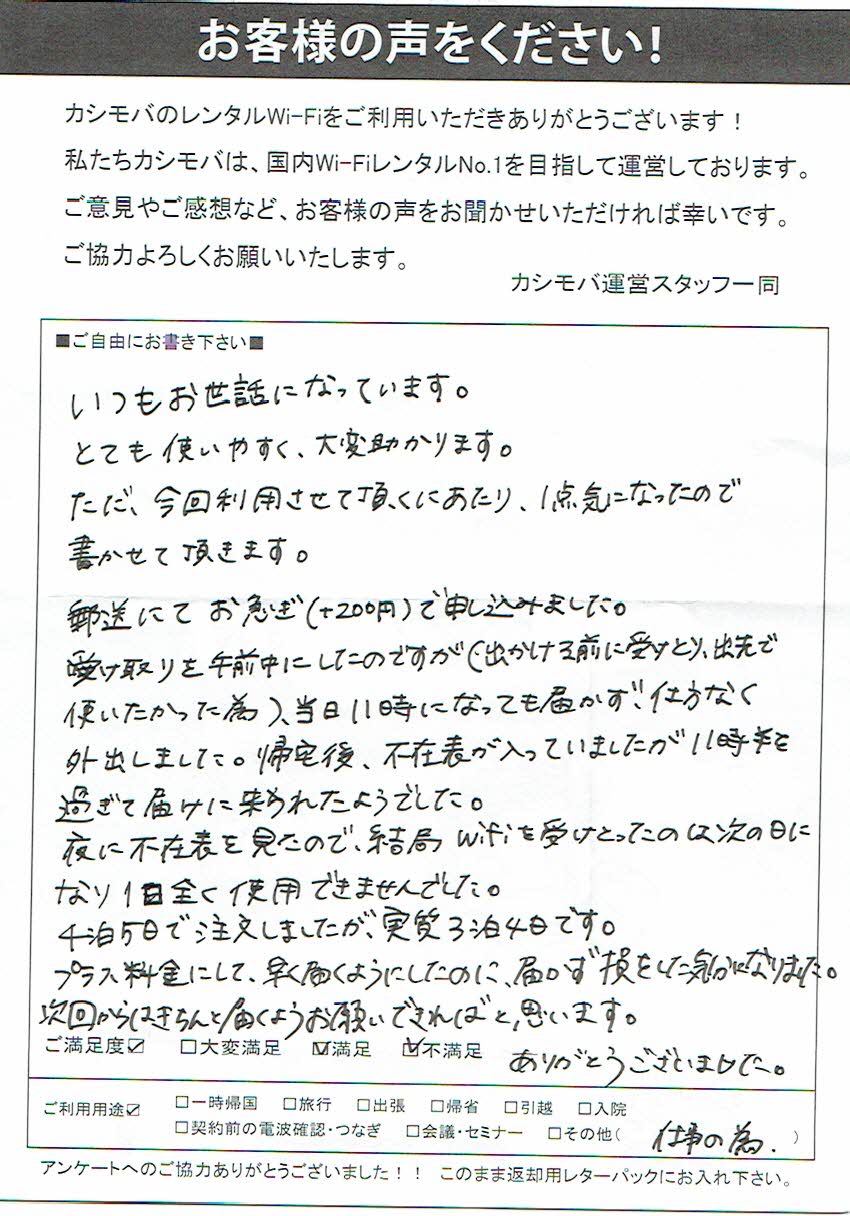 お客様の声をください!
カシモバのレンタルWi-Fiをご利用いただきありがとうございます!
私たちカシモバは、国内Wi-FiレンタルNo.1を目指して運営しております。
ご意見やご感想など、お客様の声をお聞かせいただければ幸いです。
ご協力よろしくお願いいたします。
カシモバ運営スタッフ一同
■ご自由にお書き下さい■
いつもお世話になっています。
とても使いやすく、大変助かります。
ただ、今回利用させて頂くにあたり、1点気になったので
書かせて頂きます。
郵送にてお急ぎ(+200円)で申し込みました。
受け取りを午前中にしたのですが(出かける前に受けとり、出先で
使いたかった為)、当日11時になっても届かず、仕方なく
外出しました。帰宅後、不在表が入っていましたが11時半を
過ぎて届けに来られたようでした。
夜に不在表を見たので、結局wifiを受けとったのは次の日に
なり1日全く使用できませんでした。
4泊5日で注文しましたが、実質3泊4日です。
プラス料金にして、早く届くようにしたのに、届かず損をした気分になりました。
次回からはきちんと届くようお願いできればと思います。
ご満足度☑ □大変満足 ☑満足 ☑不満足 ありがとうございました。
ご利用用途☑ □一時帰国 □旅行 □出張 □帰省 □引越 □入院
□契約前の電波確認・つなぎ □会議・セミナー □その他( 仕事の為. )
アンケートへのご協力ありがとうございました!! このまま返却用レターパックにお入れ下さい。